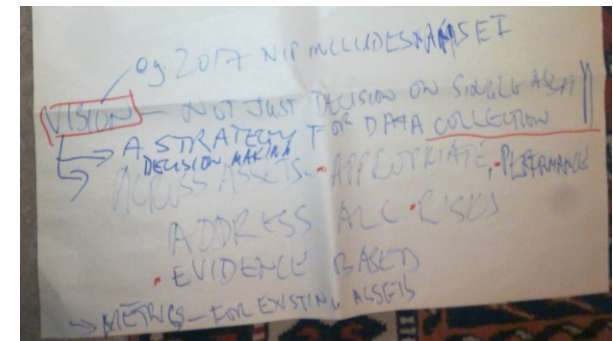 eg. 2017 NIP INCLUDES
VISION – NOT JUST DECISION ON SINGLE ASSET
→ A STRATEGY FOR DATA COLLECTION
DECISION MAKING
ACROSS ASSETS – • APPROPRIATE, • PERFORMANCE
ADDRESS ALL • RISKS
• EVIDENCE BASED
→ METRICS – FOR EXISTING ASSETS